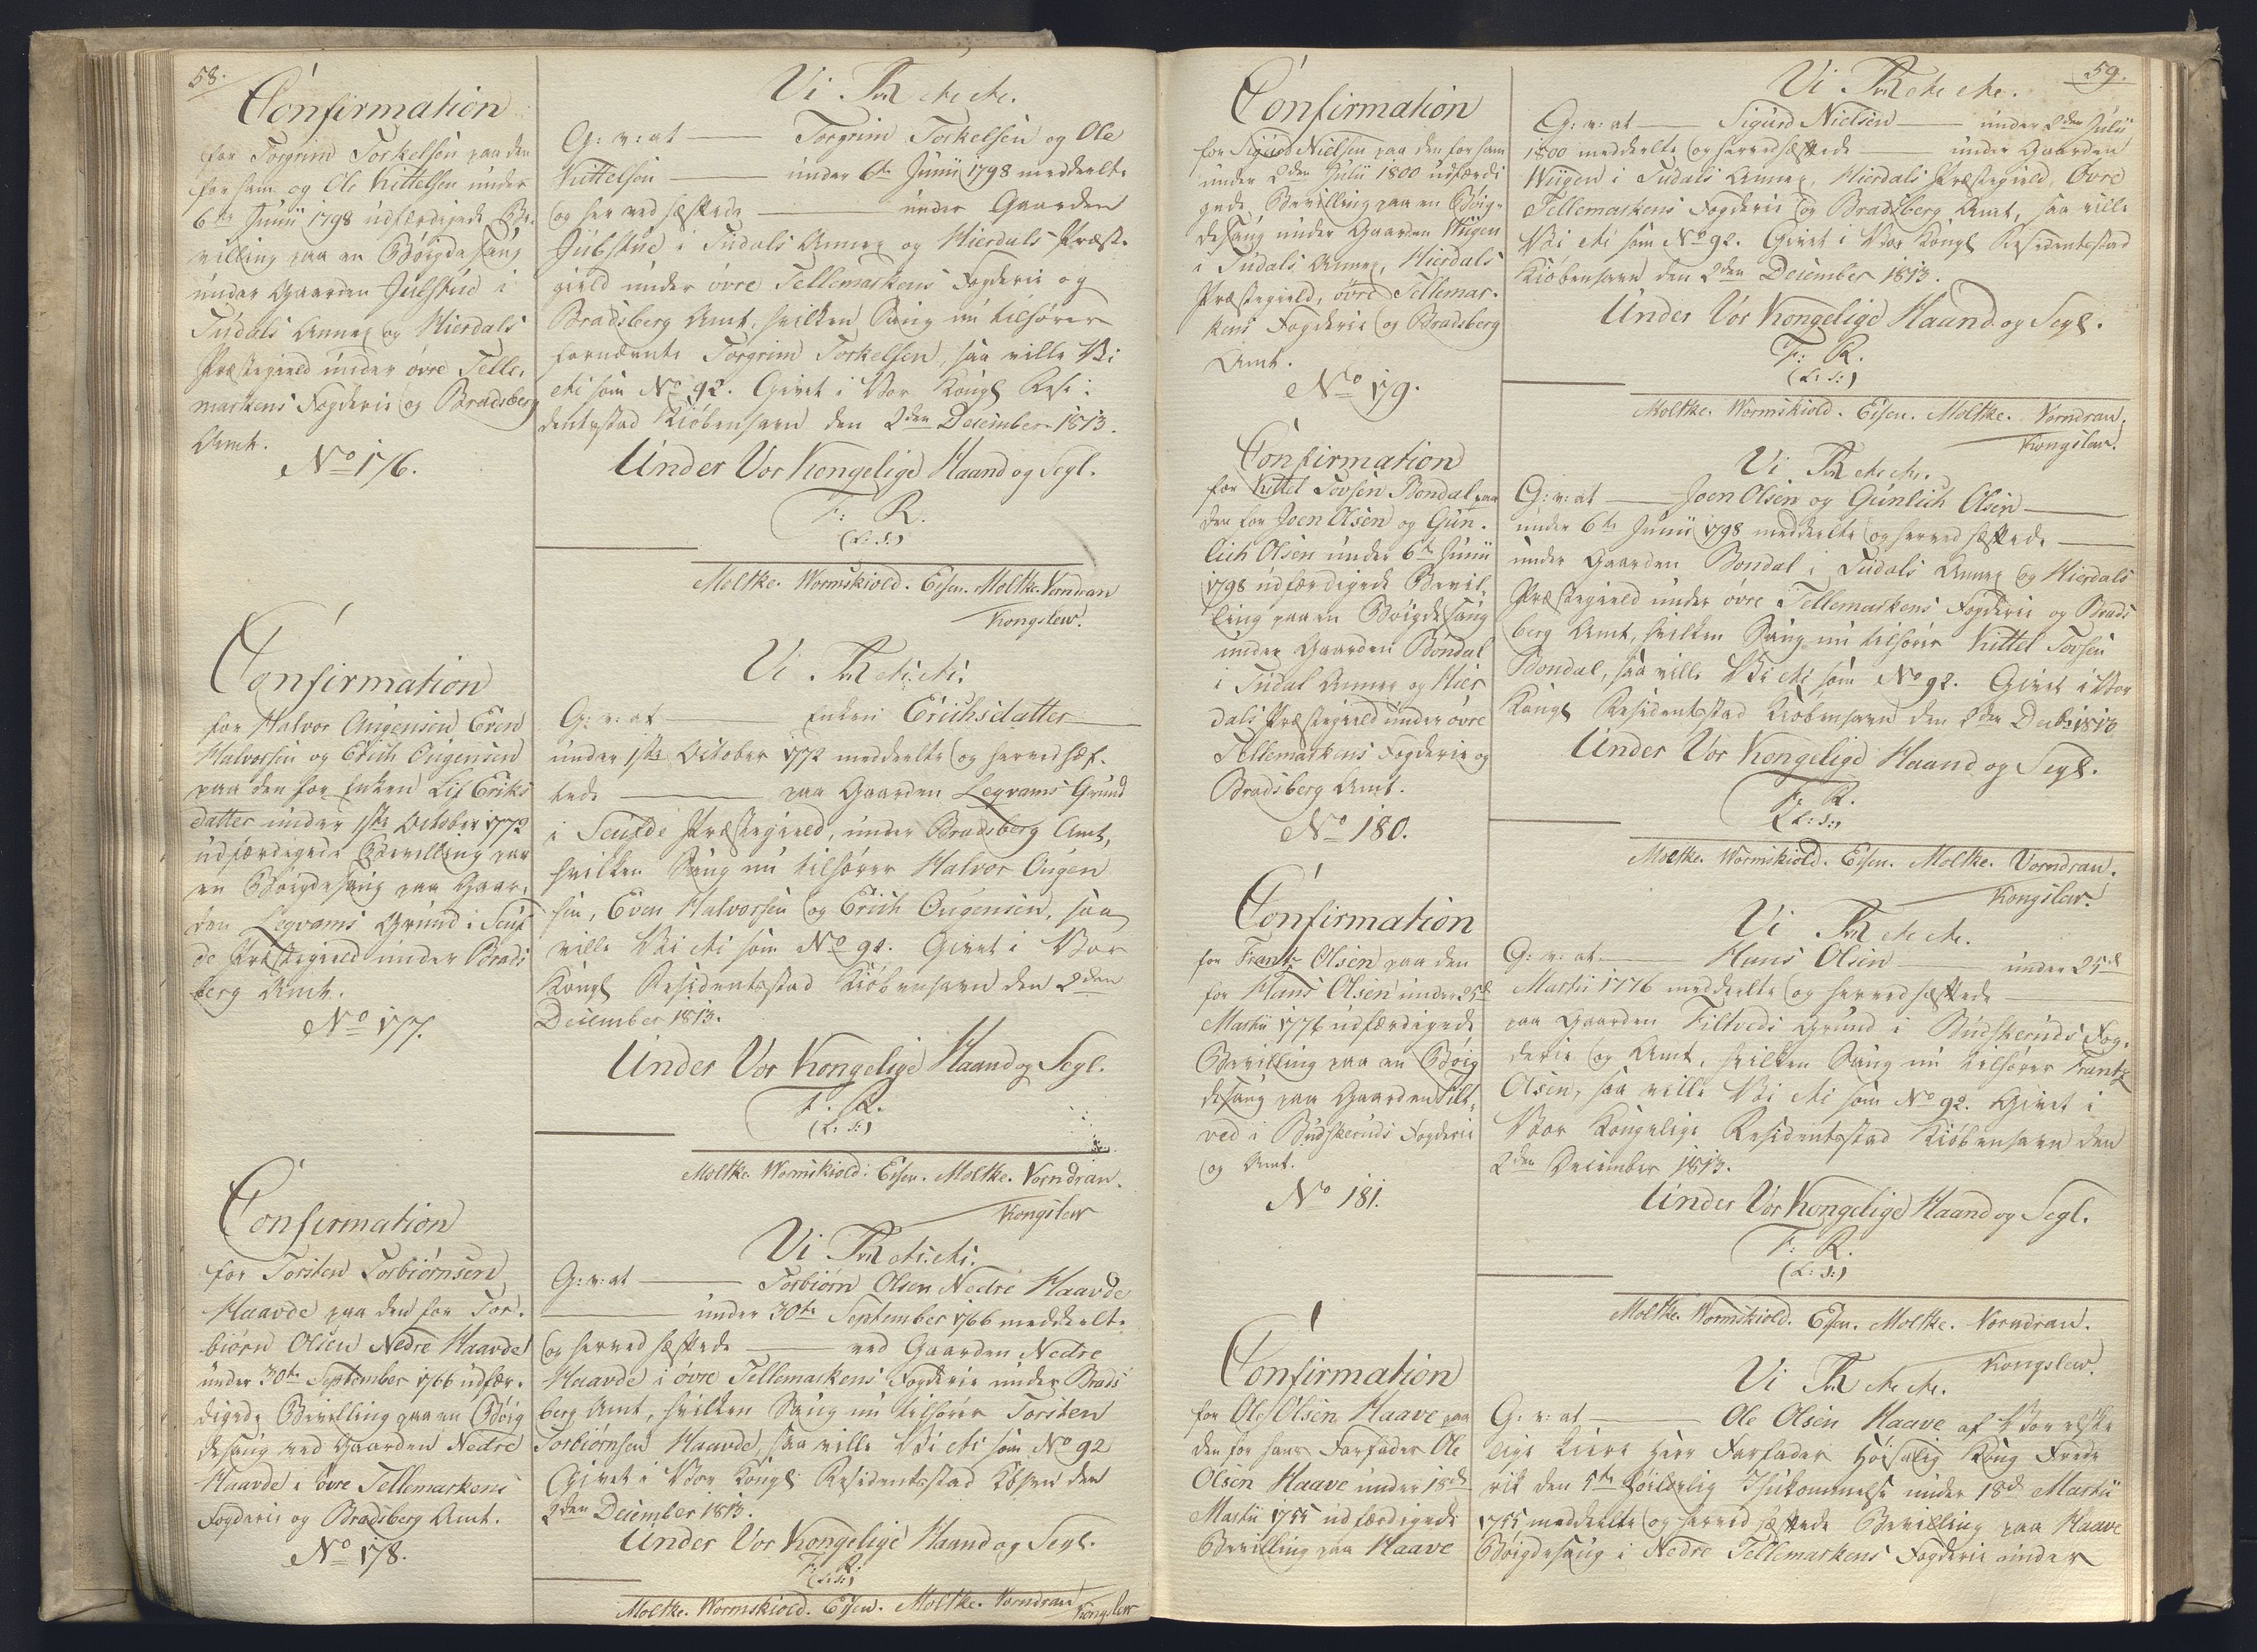 58.
Confirmation
for Torgrim Torkelsen paa den
for ham og Ole Kittelsen under
6te Junii 1798 udfærdigede Be-
villing paa en Bøigdesaug
under Gaarden Jubstue i
Tudals Annex og Hierdals
Præstegield under övre Telle-
markens Fogderie og Bradsberg
Amt.
No 176.
Vi Fr. R etc etc.
G: v: at — Torgrim Torkelsen og Ole
Kittelsen — under 6te Junii 1798 meddeelte
og herved hæftede — under Gaarden
Jubstue i Tudals Annex og Hierdals Præste-
gield under övre Tellemarkens Fogderie og
Bradsberg Amt, hvilken Saug nu tilhører
fornævnte Torgrim Torkelsen, saa ville Vi
etc som No 92. Givet i Vor Kongl Resi-
dentzstad Kiöbenhavn den 2den December 1813.
Under Vor Kongelige Haand og Segl.
F: R.
(L: S:)
Moltke. Wormskiold. Eisen. Moltke. Vorndran
Kongslew.
Confirmation
for Halvor Augensen Even
Halvorsen og Erich Augensen
paa den for Enken Lif Eriks
datter under 1ste October 1772
udfærdigede Bevilling paa
en Bøigdesaug paa Gaar-
den Legvams Grund i Seuf
de Præstegield under Brads
berg Amt.
No 177.
Vi Fr. R etc. etc.
G: v: at — Enken Erichsdatter —
under 1ste October 1772 meddeelte og herved hæf-
tede — paa Gaarden Legvams Grund
i Seufde Præstegield, under Bradsberg Amt,
hvilken Saug nu tilhører Halvor Augen
sen, Even Halvorsen og Erich Augensen, saa
ville Vi etc som No 92. Givet i Vor
Kongl Residentzstad Kiöbenhavn den 2den
December 1813.
Under Vor Kongelige Haand og Segl.
F. R.
(L: S:)
Moltke. Wormskiold. Eisen. Moltke. Vorndran.
Kongslew
Confirmation
for Torsten Torbiörnsen
Haavde paa den for Tor-
biörn Olsen Nedre Haavde
under 30te September 1766 udfær-
digede Bevilling paa en Bøig
desaug ved Gaarden Nedre
Haavde i övre Tellemarkens
Fogderie og Bradsberg Amt.
No 178.
Vi Fr. R etc. etc.
G: v: at — Torbiörn Olsen Nedre Haavde
— under 30te September 1766 meddeelte
og herved hæftede — ved Gaarden Nedre
Haavde i övre Tellemarkens Fogderie under Brads
berg Amt, hvilken Saug nu tilhører Torsten
Torbiörnsen Haavde, saa ville Vi etc som No 92
Givet i Vor Kongl. Residentzstad Kbhvn den
2den December 1813.
Under Vor Kongelige Haand og Segl.
F: R.
(L: S:)
Moltke. Wormskiold. Eisen. Moltke. Vorndran Kongslew
59.
Confirmation
for Sigurd Nielsen paa den for ham
under 2den Julii 1800 udfærdi
gede Bevilling paa en Bøig-
desaug under Gaarden Wiigen
i Tudals Annex, Hierdals
Præstegield, övre Tellemar-
kens Fogderie og Bradsberg
Amt.
No 179.
Vi Fr. R etc etc.
G: v: at — Sigurd Nielsen — under 2den Julii
1800 meddeelte og herved hæftede — under Gaarden
Wiigen i Tudals Annex, Hierdals Præstegield, Övre
Tellemarkens Fogderie og Bradsberg Amt, saa ville
Vi etc som No 92. Givet i Vor Kongl Residentzstad
Kiöbenhavn den 2den December 1813.
Under Vor Kongelige Haand og Segl.
F: R.
(L: S:)
Moltke. Wormskiold. Eisen. Moltke. Vorndran.
Kongslew.
Confirmation
for Kittel Tovsen Bondal paa
den for Joen Olsen og Gun-
lich Olsen under 6te Junii
1798 udfærdigede Bevil-
ling paa en Bøigdesaug
under Gaarden Bondal
i Tudal Annex og Hier
dals Præstegield under övre
Tellemarkens Fogderie og
Bradsberg Amt.
No 180.
Vi Fr. R etc etc.
G: v: at — Joen Olsen og Gunlich Olsen —
under 6te Junii 1798 meddeelte og herved hæftede —
under Gaarden Bondal i Tudals Annex og Hierdals
Præstegield under övre Tellemarkens Fogderie og Brads
berg Amt, hvilken Saug nu tilhører Kittel Tovsen
Bondal, saa ville Vi etc som No 92. Givet i Vor
Kongl Residentzstad Kiöbenhavn den 2den Decbr 1813
Under Vor Kongelige Haand og Segl.
F: R.
(L: S:)
Moltke. Wormskiold. Eisen. Moltke. Vorndran.
Kongslew.
Confirmation
for Frantz Olsen paa den
for Hans Olsen under 25de
Martii 1776 udfærdigede
Bevilling paa en Bøig
desaug paa Gaarden Filt-
ved i Budskeruds Fogderie
og Amt.
No 181.
Vi Fr. R etc etc.
G: v: at — Hans Olsen — under 25de
Martii 1776 meddeelte og herved hæftede —
paa Gaarden Filtveds Grund i Budskeruds Fog-
derie og Amt, hvilken Saug nu tilhører Frantz
Olsen, saa ville Vi etc som No 92. Givet i
Vor Kongelige Residentzstad Kiöbenhavn den
2den December 1813.
Under Vor Kongelige Haand og Segl.
F: R.
(L: S:)
Moltke. Wormskiold. Eisen. Moltke. Vorndran.
Kongslew.
Confirmation
for Ole Olsen Haave paa
den for hans Farfader Ole
Olsen Haave under 18de
Martii 1755 udfærdigede
Bevilling paa Haave
Vi Fr. R etc etc.
G: v: at — Ole Olsen Haave af Vor elske
lige kiere Herr Farfader Höisalig Kong Frede
rik den 5te höilovlig Ihukommelse under 18de Martii
1755 meddeelte og herved hæftede Bevilling paa Haave
Bøigdesaug i Nedre Tellemarkens Fogderie under